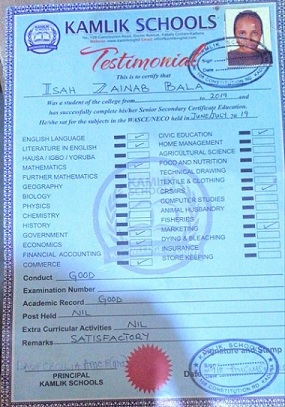 KAMLIK SCHOOLS
Testimonial
This is to certify that
ISAH ZAINAB BALA
Was a student of the college from to 2019 and
successfully completed his/her Senior Secondary Certificate Education.
He/she sat for the subjects in the WASCE/NECO held in JUNE/JULY to 19
ENGLISH LANGUAGE
LITERATURE IN ENGLISH
HAUSA / IGBO / YORUBA
MATHEMATICS
FURTHER MATHEMATICS
GEOGRAPHY
BIOLOGY
PHYSICS
CHEMISTRY
HISTORY
GOVERNMENT
ECONOMICS
FINANCIAL ACCOUNTING
COMMERCE
CIVIC EDUCATION
HOME MANAGEMENT
AGRICULTURAL SCIENCE
FOOD AND NUTRITION
TECHNICAL DRAWING
TEXTILE & CLOTHING
CRS/IRS
COMPUTER STUDIES
ANIMAL HUSBANDRY
FISHERIES
MARKETING
DYING & BLEACHING
INSURANCE
STORE KEEPING
Conduct GOOD
Examination Number
Academic Record GOOD
Post Held NIL
Extra Curricular Activities NIL
Remarks SATISFACTORY
Signature and Stamp
PRINCIPAL
KAMLIK SCHOOLS
Date